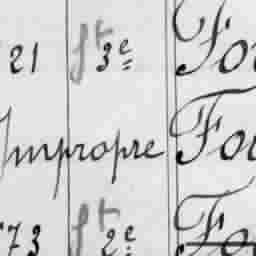 21 ft 3e Fo
Impropre Fo
73 ft 2e Fo